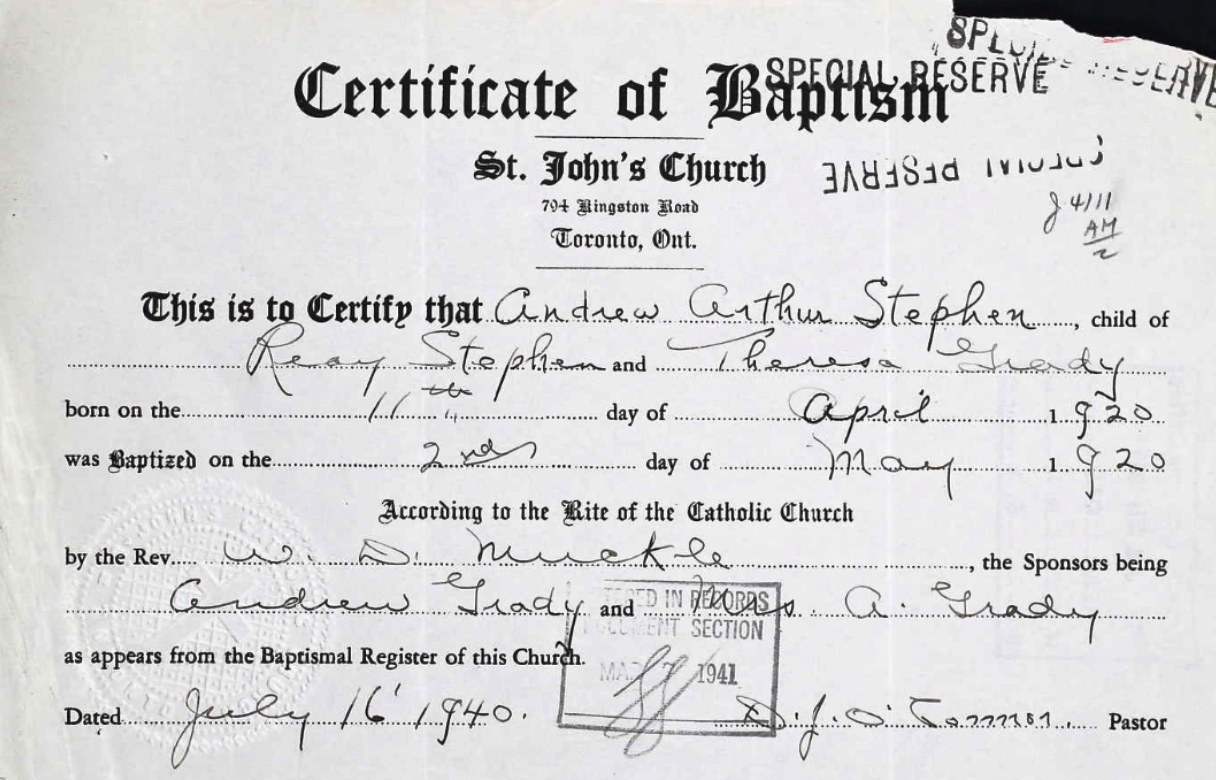 SPECIAL RESERVE
Certificate of Baptism
SPECIAL RESERVE
St. John's Church
RESERVE
794 Kingston Road
J 4111
AM
2
Toronto, Ont.
This is to Certify that Andrew Arthur Stephen, child of
Reay Stephen and Theresa Grady
born on the 11th day of April 1920
was Baptized on the 2nd day of May 1920
According to the Rite of the Catholic Church
by the Rev. W. D. Muckle, the Sponsors being
Andrew Grady and Mrs. A. Grady
IN RECORDS
DOCUMENT SECTION
as appears from the Baptismal Register of this Church.
MAR 7 1941
Dated July 16 1940. D. J. O'Connor Pastor